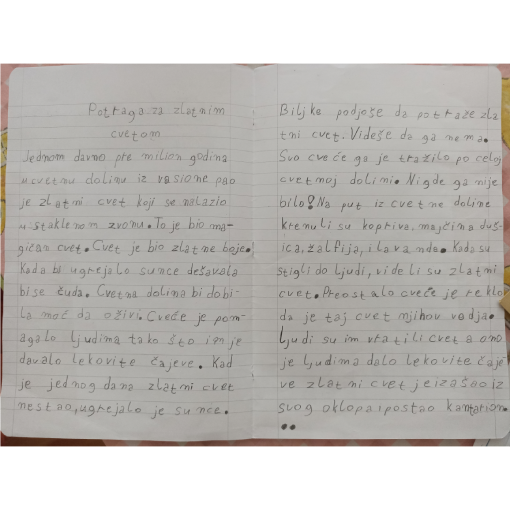 Potraga za zlatnim
cvetom
Jednom davno pre milion godina
u cvetnu dolinu iz vasione pao
je zlatni cvet koji se nalazio
u staklenom zvonu. To je bio ma-
gičan cvet. Cvet je bio zlatne boje.
Kada bi ugrejalo sunce dešavala
bi se čuda. Cvetna dolina bi dobi-
la moć da oživi. Cveće je pom-
agalo ljudima tako što im je
davalo lekovite čajeve. Kad
je jednog dana zlatni cvet
nestao, ugrejalo je sunce.
Biljke podjoše da potraže zla
tni cvet. Videše da ga nema.
Svo cveće ga je tražilo po celoj
cvetnoj dolini. Nigde ga nije
bilo! Na put iz cvetne doline
krenuli su kopriva, majčina duš-
ica, žalfija, i lavanda. Kada su
stigli do ljudi, videli su zlatni
cvet. Preostalo cveće je reklo
da je taj cvet njihov vodja.
Ljudi su im vratili cvet a ono
je ljudima dalo lekovite čaje
ve zlatni cvet je izašao iz
svog oklopa i postao kantarion.
..